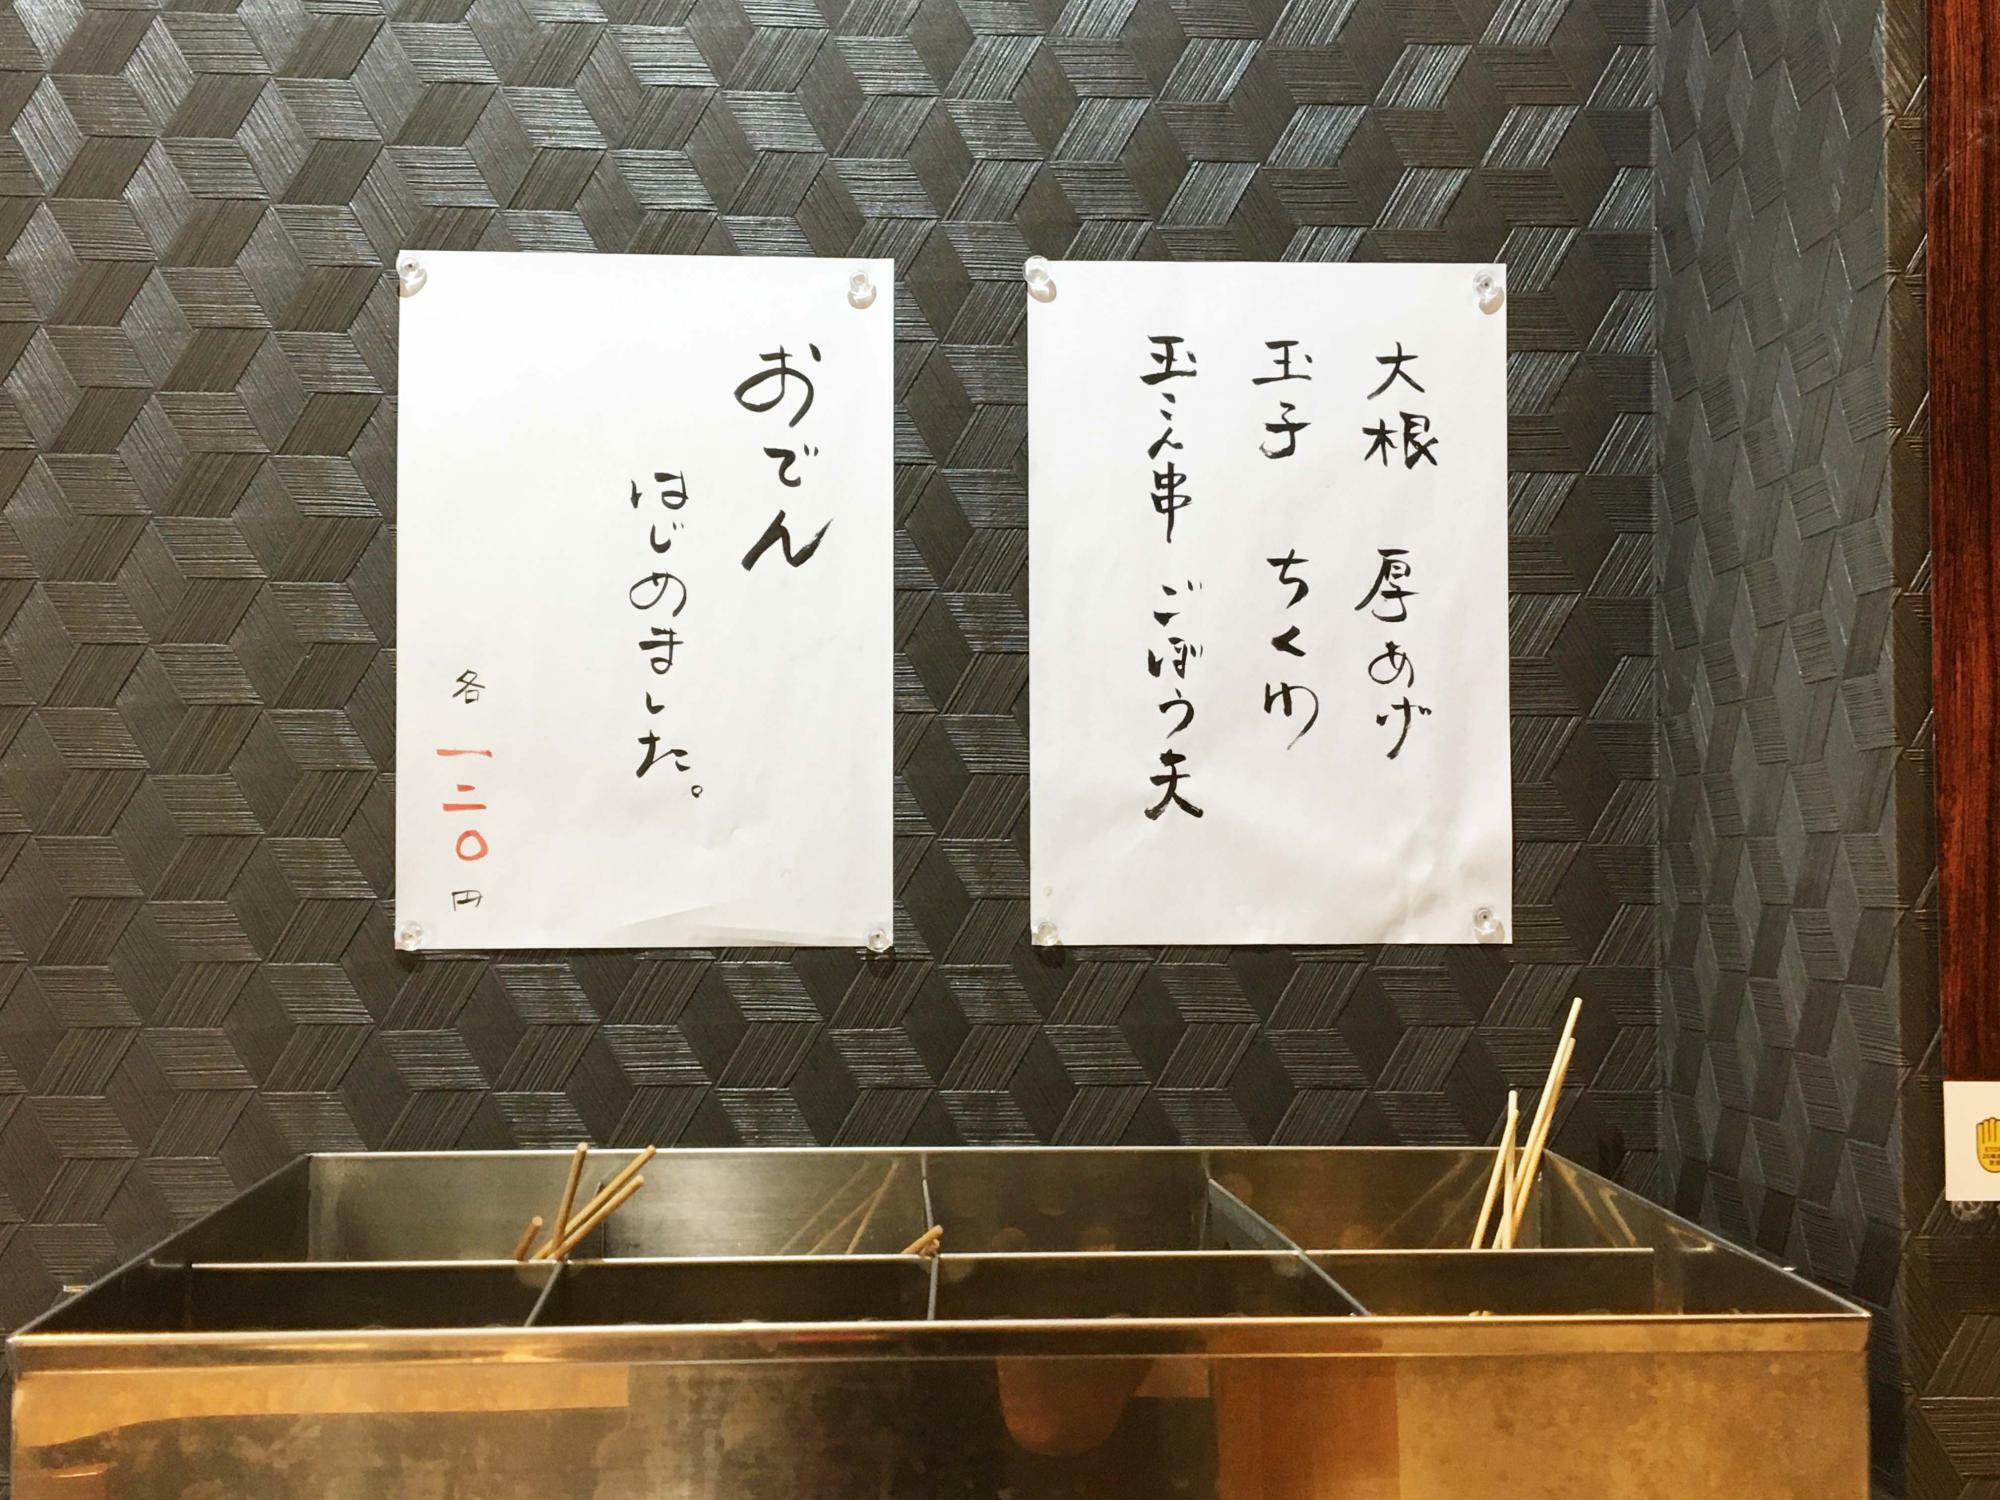 おでん
はじめました。
各 一二〇円
大根 厚あげ
玉子 ちくわ
玉こん串 ごぼう天
STOP